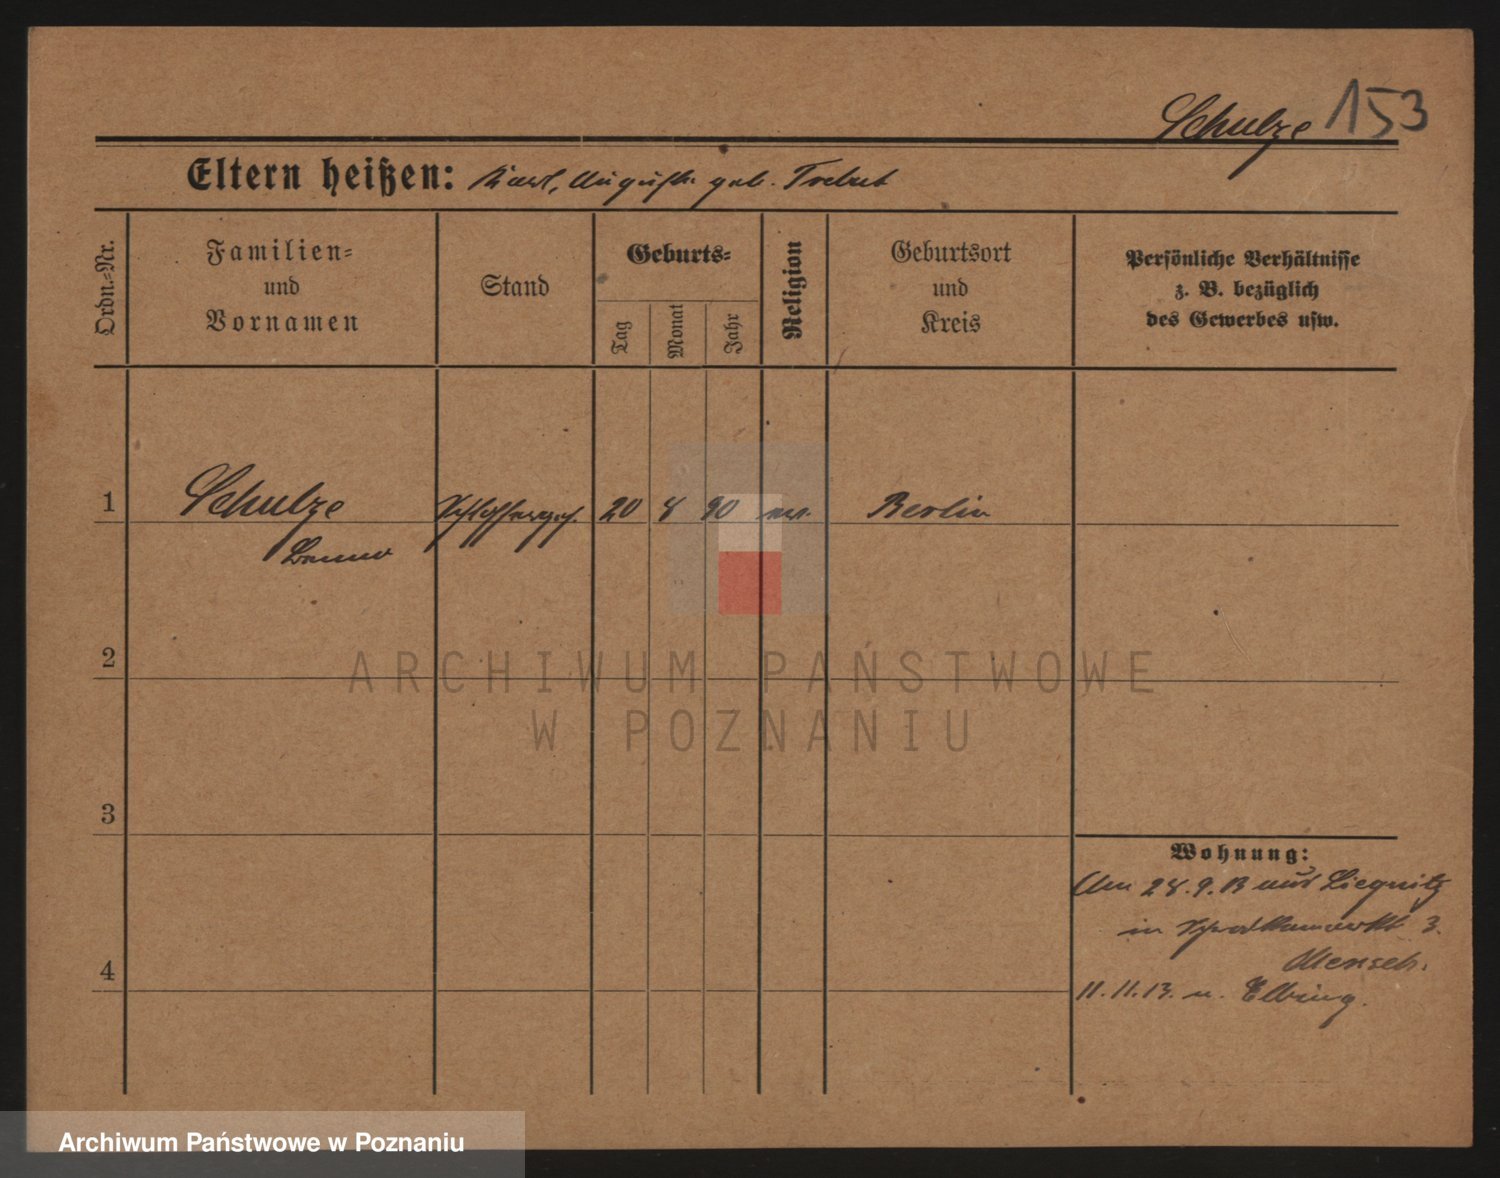 Schulze 153
Eltern heißen: Karl, Auguste geb.
Ordn.-Nr.
Familien-
und
Vornamen
Stand
Geburts-
Tag
Monat
Jahr
Religion
Geburtsort
und
Kreis
Persönliche Verhältnisse
z. B. bezüglich
des Gewerbes usw.
1 Schulze Schlosserges. 20 8 90 ev. Berlin
2
ARCHIWUM PAŃSTWOWE
W POZNANIU
3
Wohnung:
Am 28.9.13 aus Liegnitz
in 3.
Mensch.
4
11.11.13. n. Elbing.
Archiwum Państwowe w Poznaniu